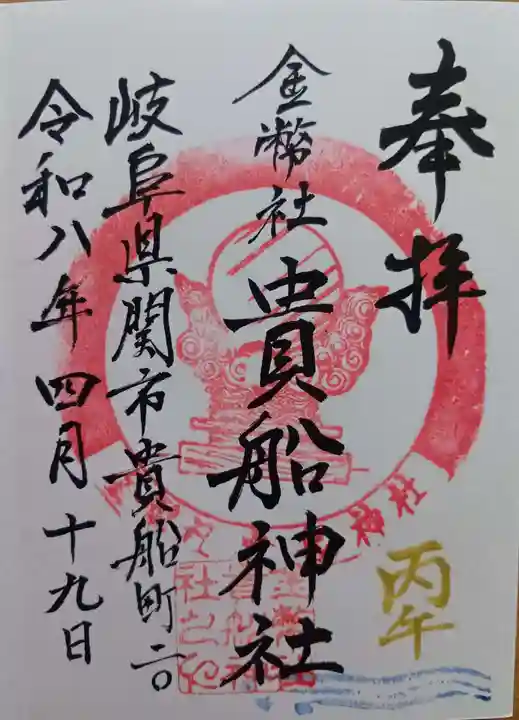 奉拝
丙午
金幣社 貴船神社
岐阜県関市貴船町二〇
令和八年四月十九日
神社